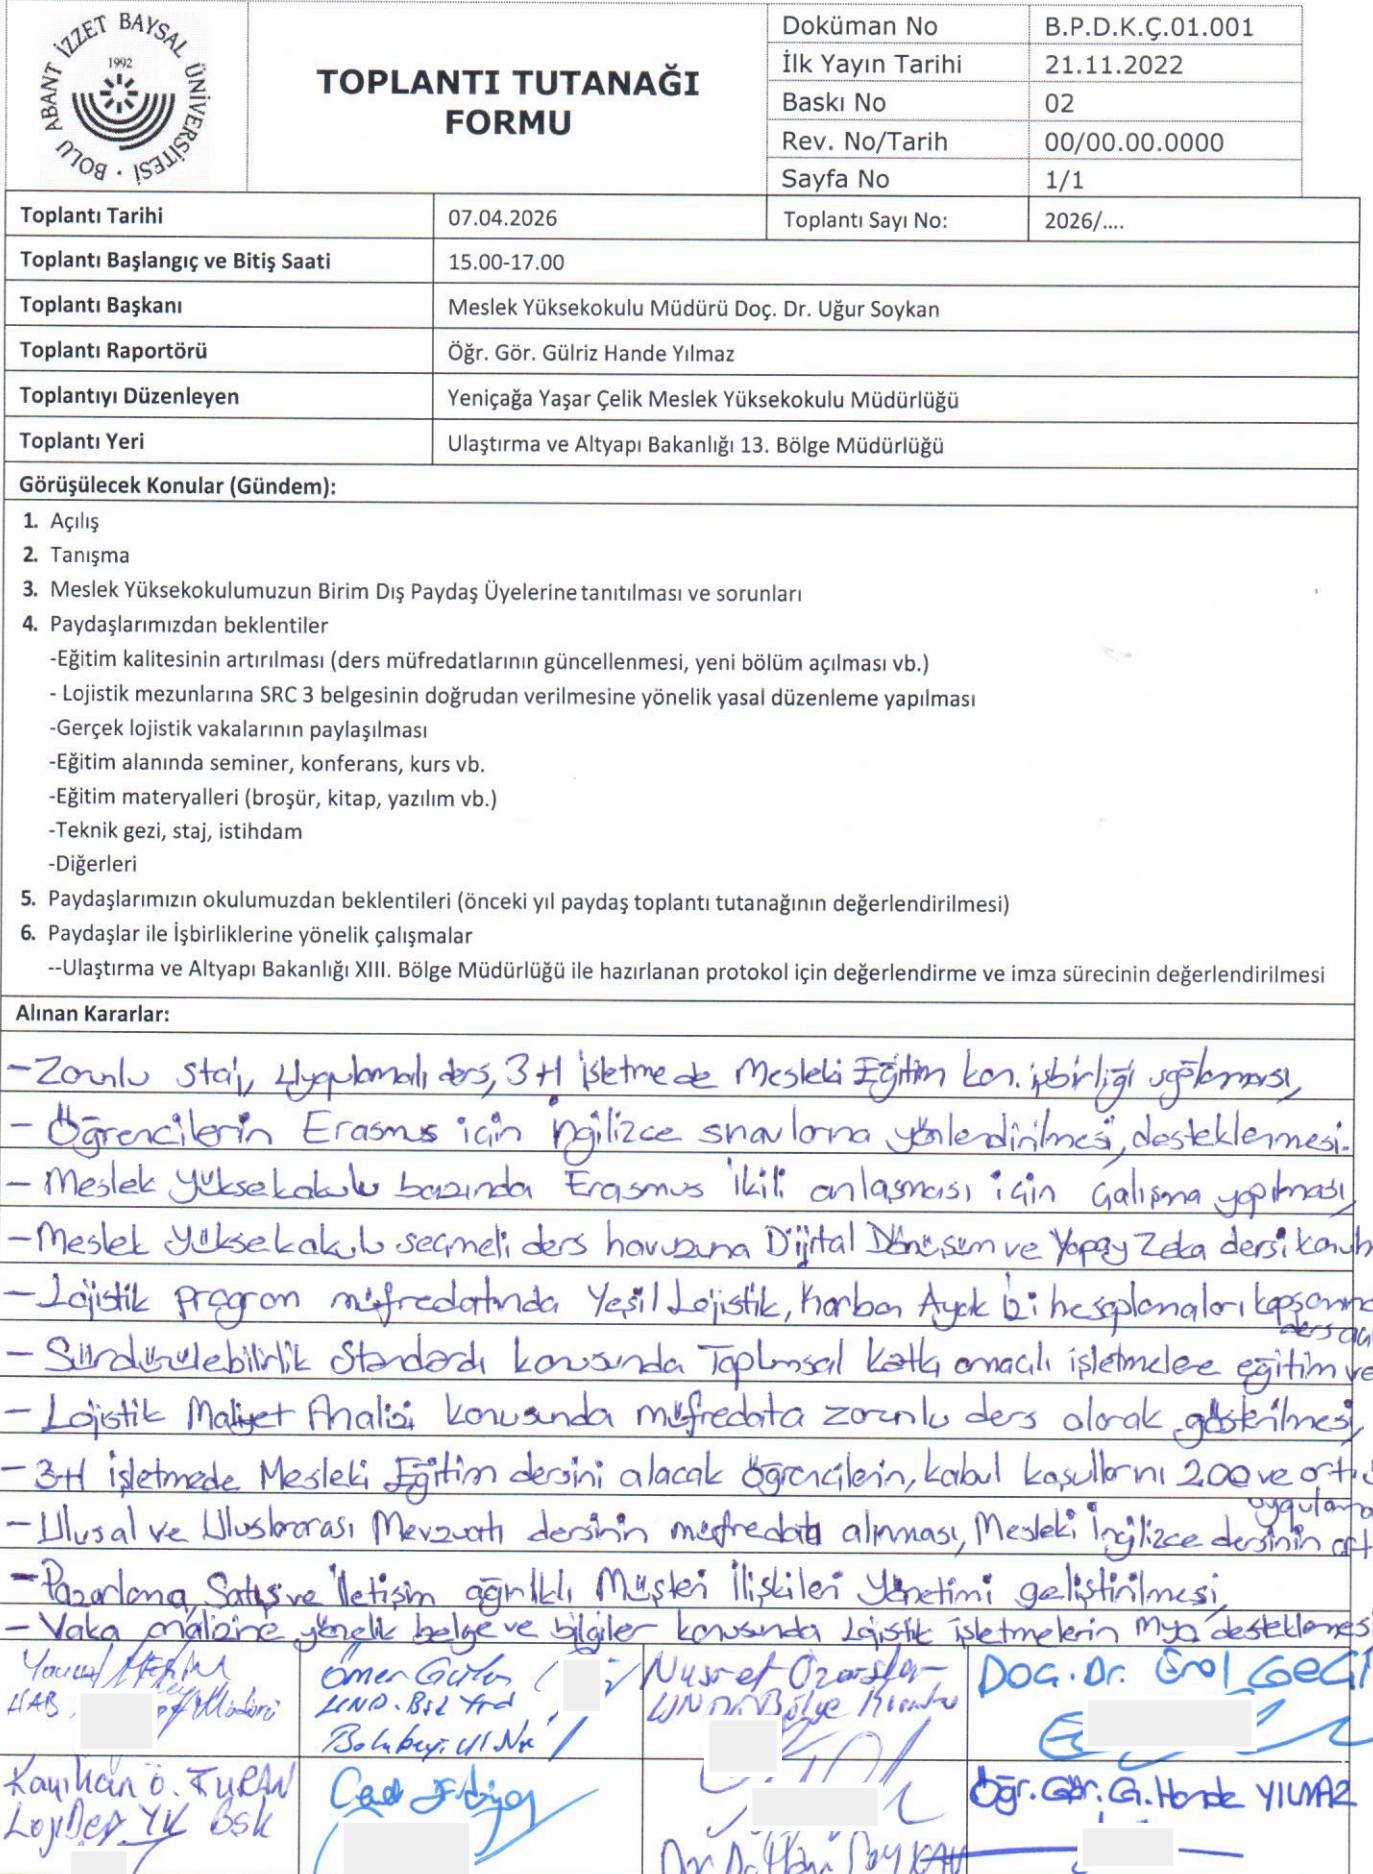 BOLU ABANT İZZET BAYSAL ÜNİVERSİTESİ
1992
TOPLANTI TUTANAĞI
FORMU
Doküman No B.P.D.K.Ç.01.001
İlk Yayın Tarihi 21.11.2022
Baskı No 02
Rev. No/Tarih 00/00.00.0000
Sayfa No 1/1
Toplantı Tarihi 07.04.2026 Toplantı Sayı No: 2026/....
Toplantı Başlangıç ve Bitiş Saati 15.00-17.00
Toplantı Başkanı Meslek Yüksekokulu Müdürü Doç. Dr. Uğur Soykan
Toplantı Raportörü Öğr. Gör. Gülriz Hande Yılmaz
Toplantıyı Düzenleyen Yeniçağa Yaşar Çelik Meslek Yüksekokulu Müdürlüğü
Toplantı Yeri Ulaştırma ve Altyapı Bakanlığı 13. Bölge Müdürlüğü
Görüşülecek Konular (Gündem):
1. Açılış
2. Tanışma
3. Meslek Yüksekokulumuzun Birim Dış Paydaş Üyelerine tanıtılması ve sorunları
4. Paydaşlarımızdan beklentiler
-Eğitim kalitesinin artırılması (ders müfredatlarının güncellenmesi, yeni bölüm açılması vb.)
- Lojistik mezunlarına SRC 3 belgesinin doğrudan verilmesine yönelik yasal düzenleme yapılması
-Gerçek lojistik vakalarının paylaşılması
-Eğitim alanında seminer, konferans, kurs vb.
-Eğitim materyalleri (broşür, kitap, yazılım vb.)
-Teknik gezi, staj, istihdam
-Diğerleri
5. Paydaşlarımızın okulumuzdan beklentileri (önceki yıl paydaş toplantı tutanağının değerlendirilmesi)
6. Paydaşlar ile İşbirliklerine yönelik çalışmalar
--Ulaştırma ve Altyapı Bakanlığı XIII. Bölge Müdürlüğü ile hazırlanan protokol için değerlendirme ve imza sürecinin değerlendirilmesi
Alınan Kararlar:
- Zorunlu staj, Uygulamalı ders, 3+1 işletmede Mesleki Eğitim kon. işbirliği sağlanması,
- Öğrencilerin Erasmus için İngilizce sınavlarına yönlendirilmesi, desteklenmesi.
- Meslek Yüksekokulu bazında Erasmus İkili anlaşması için Çalışma yapılması,
- Meslek Yüksekokulu seçmeli ders havuzuna Dijital Dönüşüm ve Yapay Zeka dersi
- Lojistik program müfredatında Yeşil Lojistik, Karbon Ayak izi hesaplamaları
- Sürdürülebilirlik Standardı konusunda Toplumsal katkı amaçlı işletmelere eğitim
- Lojistik Maliyet Analizi konusunda müfredata zorunlu ders olarak gösterilmesi,
- 3+1 işletmede Mesleki Eğitim dersini alacak öğrencilerin, kabul koşullarını 2.00 ve
- Ulusal ve Uluslararası Mevzuatı dersinin müfredata alınması, Mesleki İngilizce dersinin
- Pazarlama, Satış ve İletişim ağırlıklı Müşteri İlişkileri Yönetimi geliştirilmesi,
- Vaka analizine yönelik belge ve bilgiler konusunda Lojistik işletmelerin desteklemesi
Ömer
UND. Bşk Yrd
Nusret Özarslan
UND Bölge
DOÇ. Dr. Erol GEÇGİ
Kayıhan Ö. TURAN
LojDer YK Bşk
Öğr. Gör. G. Hande YILMAZ